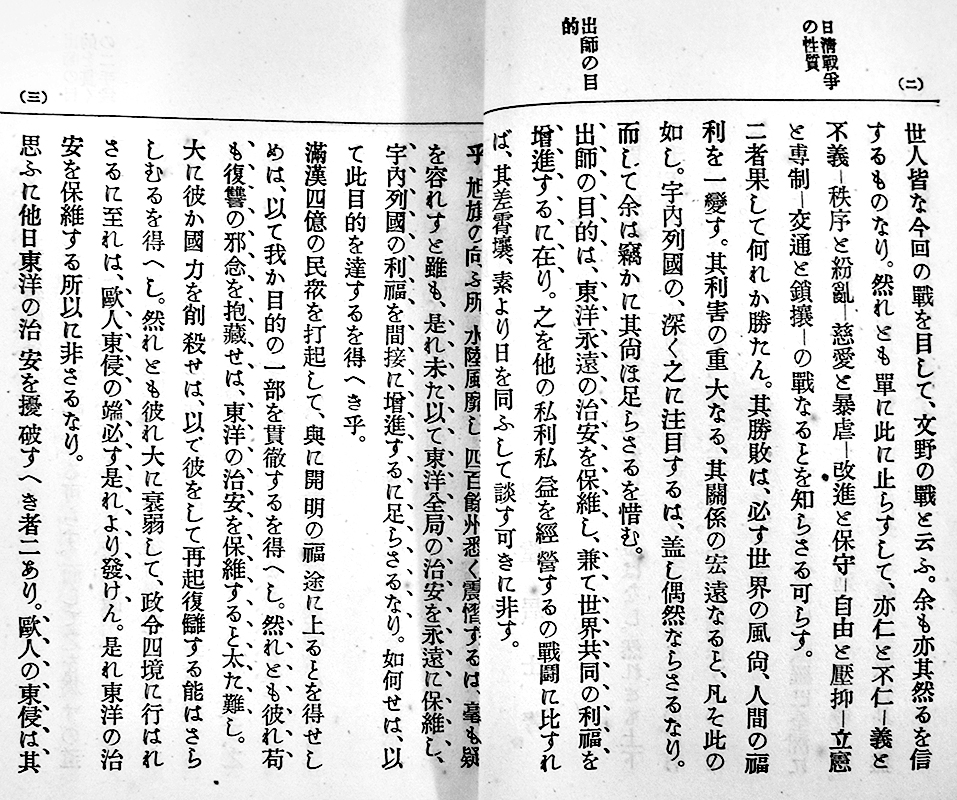 (二)
日淸戰爭
の性質
出師の目
的
世人皆な今回の戰を目して、文野の戰と云ふ。余も亦其然るを信
するものなり。然れとも單に此に止らすして、亦仁と不仁—義と
不義—秩序と紛亂—慈愛と暴虐—改進と保守—自由と壓抑—立憲
と專制—交通と鎖攘—の戰なることを知らさる可らす。
二者果して何れか勝たん。其勝敗は、必す世界の風尙、人間の福
利を一變す。其利害の重大なる、其關係の宏遠なると、凡そ此の
如し。宇內列國の、深く之に注目するは、盖し偶然ならさるなり。
而して余は竊かに其尙ほ足らさるを惜む。
出師の目的は、東洋永遠の治安を保維し、兼て世界共同の利福を
增進するに在り。之を他の私利私益を經營するの戰鬪に比すれ
ば、其差霄壤、素より日を同ふして談す可きに非す。
(三)
乎 旭旗の向ふ所 水陸風靡し 四百餘州悉く震慴するは、毫も疑
を容れすと雖も、是れ未た以て東洋全局の治安を永遠に保維し、
宇內列國の利福を間接に增進するに足らさるなり。如何せは、以
て此目的を達するを得へき乎。
滿漢四億の民衆を打起して、與に開明の福途に上ることを得せし
めは、以て我か目的の一部を貫徹するを得へし。然れとも彼れ苟
も復讐の邪念を抱藏せは、東洋の治安を保維すること太た難し。
大に彼か國力を削殺せは、以て彼をして再起復讎する能はさら
しむるを得へし。然れとも彼れ大に衰弱して、政令四境に行はれ
さるに至れは、歐人東侵の端必す是れより發けん。是れ東洋の治
安を保維する所以に非さるなり。
思ふに他日東洋の治安を擾破すへき者二あり。歐人の東侵は其